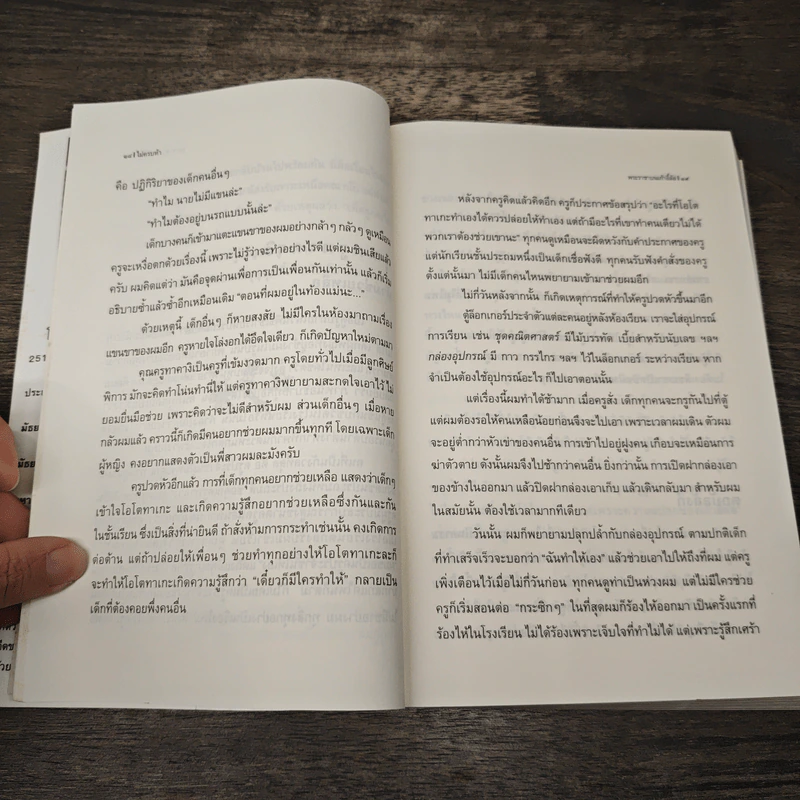 ๒๘ | ไม่ครบห้า
คือ ปฏิกิริยาของเด็กคนอื่นๆ
"ทำไม นายไม่มีแขนล่ะ"
"ทำไมต้องอยู่บนรถแบบนั้นล่ะ"
เด็กบางคนก็เข้ามาแตะแขนขาของผมอย่างกล้าๆ กลัวๆ ดูเหมือน
ครูจะเหงื่อตกด้วยเรื่องนี้ เพราะไม่รู้ว่าจะทำอย่างไรดี แต่ผมชินเสียแล้ว
ครับ ผมคิดแต่ว่า มันคือจุดผ่านเพื่อการเป็นเพื่อนกันเท่านั้น แล้วก็เริ่ม
อธิบายซ้ำแล้วซ้ำอีกเหมือนเดิม "ตอนที่ผมอยู่ในท้องแม่นะ..."
ด้วยเหตุนี้ เด็กอื่นๆ ก็หายสงสัย ไม่มีใครในห้องมาถามเรื่อง
แขนขาของผมอีก ครูหายใจโล่งอกได้อึดใจเดียว ก็เกิดปัญหาใหม่ตามมา
คุณครูทาคางิเป็นครูที่เข้มงวดมาก ครูโดยทั่วไปเมื่อมีลูกศิษย์
พิการ มักจะคิดทำโน่นทำนี่ให้ แต่ครูทาคางิพยายามสะกดใจเอาไว้ ไม่
ยอมยื่นมือช่วย เพราะคิดว่าจะไม่ดีสำหรับผม ส่วนเด็กอื่นๆ เมื่อหาย
กลัวผมแล้ว คราวนี้ก็เกิดมีคนอยากช่วยผมมากขึ้นทุกที โดยเฉพาะเด็ก
ผู้หญิง คงอยากแสดงตัวเป็นพี่สาวผมละมังครับ
ครูปวดหัวอีกแล้ว การที่เด็กทุกคนอยากช่วยเหลือ แสดงว่าเด็กๆ
เข้าใจโอโตทาเกะ และเกิดความรู้สึกอยากช่วยเหลือซึ่งกันและกัน
ในชั้นเรียน ซึ่งเป็นสิ่งที่น่ายินดี ถ้าสั่งห้ามการกระทำเช่นนั้น คงเกิดการ
ต่อต้าน แต่ถ้าปล่อยให้เพื่อนๆ ช่วยทำทุกอย่างให้โอโตทาเกะละก็
จะทำให้โอโตทาเกะเกิดความรู้สึกว่า "เดี๋ยวก็มีใครทำให้" กลายเป็น
เด็กที่ต้องคอยพึ่งคนอื่น
251
หลังจากครูคิดแล้วคิดอีก ครูก็ประกาศข้อสรุปว่า "อะไรที่โอโต
ทาเกะทำเองได้ควรปล่อยให้ทำเอง แต่ถ้ามีอะไรที่เขาทำคนเดียวไม่ได้
พวกเราต้องช่วยเขานะ" ทุกคนดูเหมือนจะผิดหวังกับคำประกาศของครู
แต่นักเรียนชั้นประถมหนึ่งเป็นเด็กเชื่อฟังดี ทุกคนรับฟังคำสั่งของครู
ตั้งแต่นั้นมา ไม่มีเด็กคนไหนพยายามเข้ามาช่วยผมอีก
ไม่กี่วันหลังจากนั้น ก็เกิดเหตุการณ์ที่ทำให้ครูปวดหัวขึ้นมาอีก
ตู้ล็อกเกอร์ประจำตัวแต่ละคนอยู่หลังห้องเรียน เราจะใส่อุปกรณ์
การเรียน เช่น ชุดคณิตศาสตร์ มีไม้บรรทัด เบี้ยสำหรับนับเลข ฯลฯ
กล่องอุปกรณ์ มี กาว กรรไกร ฯลฯ ไว้ในล็อกเกอร์ ระหว่างเรียน หาก
จำเป็นต้องใช้อุปกรณ์อะไร ก็ไปเอาตอนนั้น
แต่เรื่องนี้ผมทำได้ช้ามาก เมื่อครูสั่ง เด็กทุกคนจะกรูกันไปที่ตู้
แต่ผมต้องรอให้คนเหลือน้อยก่อนจึงจะไปเอา เพราะเวลาผมเดิน ตัวผม
จะอยู่ต่ำกว่าหัวเข่าของคนอื่น การเข้าไปอยู่ฝูงคน เกือบจะเหมือนการ
ฆ่าตัวตาย ดังนั้นผมจึงไปช้ากว่าคนอื่น ยิ่งกว่านั้น การเปิดฝากล่องเอา
ของข้างในออกมา แล้วปิดฝากล่องเอาเก็บ แล้วเดินกลับมา สำหรับผม
ในสมัยนั้น ต้องใช้เวลามากทีเดียว
วันนั้น ผมก็พยายามปลุกปล้ำกับกล่องอุปกรณ์ ตามปกติเด็ก
ที่ทำเสร็จเร็วจะบอกว่า "ฉันทำให้เอง" แล้วช่วยเอาไปให้ถึงที่ผม แต่ครู
เพิ่งเตือนไว้เมื่อไม่กี่วันก่อน ทุกคนดูท่าเป็นห่วงผม แต่ไม่มีใครช่วย
ครูก็เริ่มสอนต่อ "กระซิกๆ" ในที่สุดผมก็ร้องไห้ออกมา เป็นครั้งแรกที่
ร้องไห้ในโรงเรียน ไม่ได้ร้องเพราะเจ็บใจที่ทำไม่ได้ แต่เพราะรู้สึกเศร้า